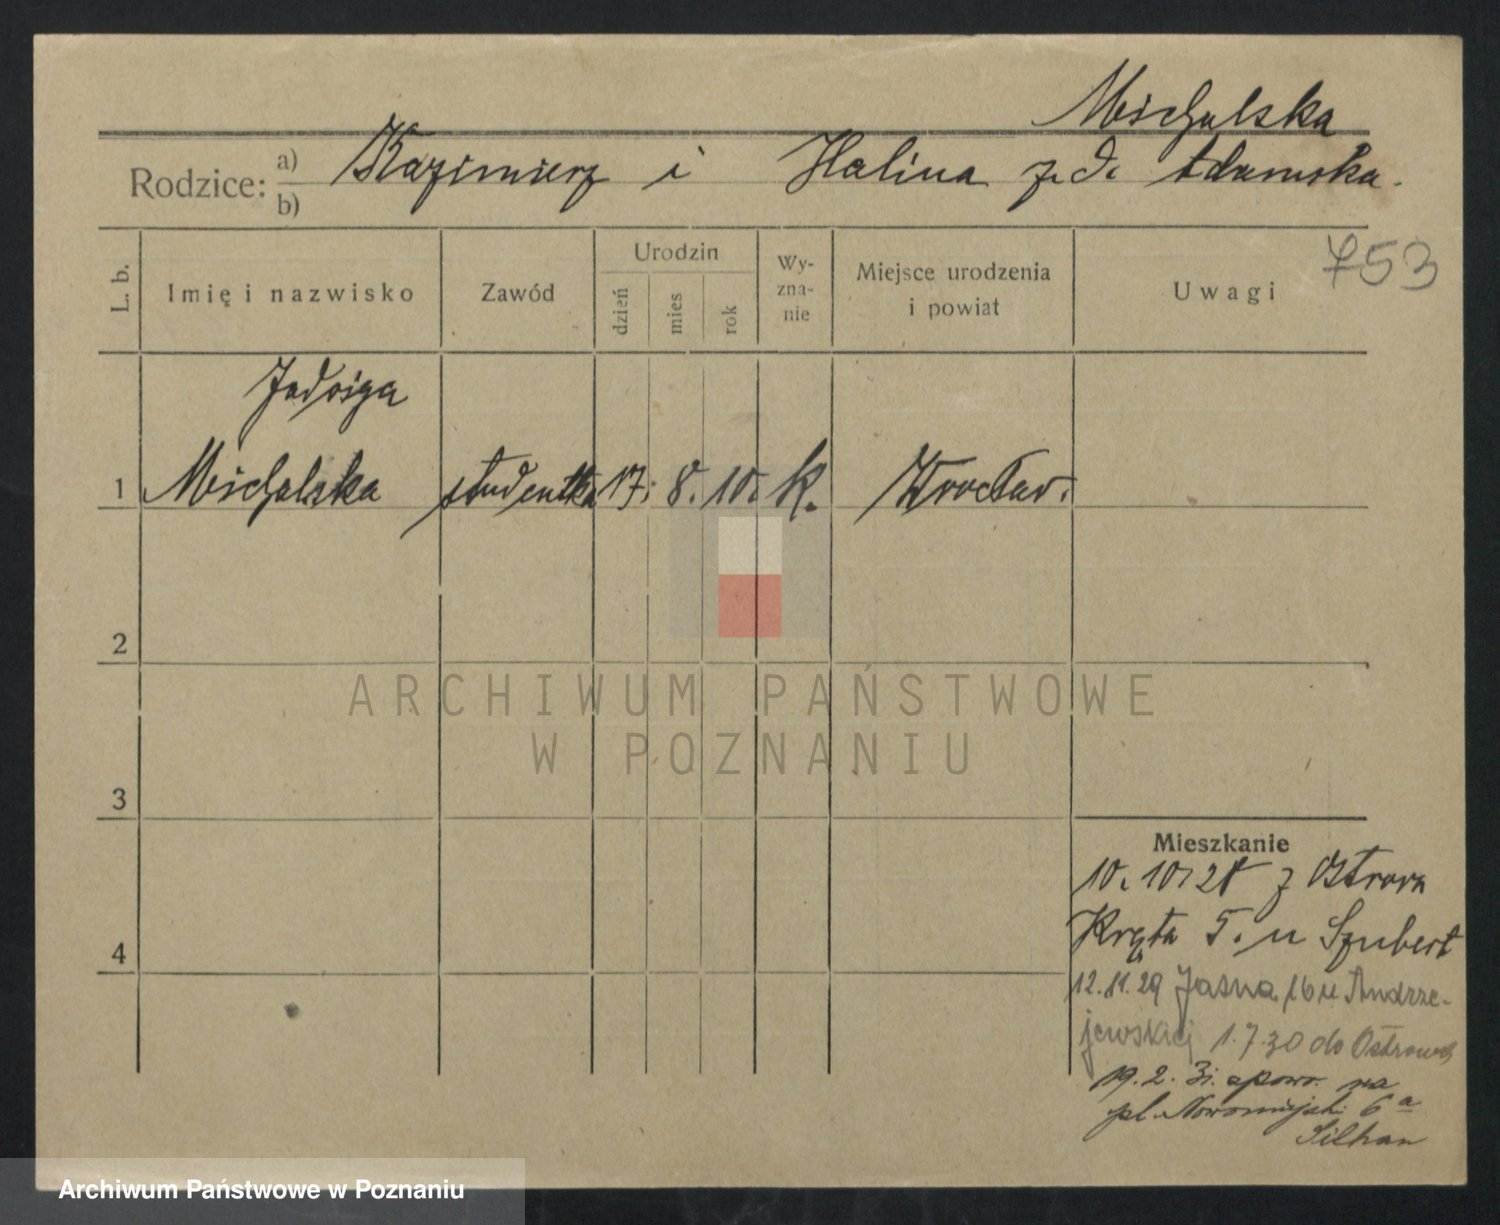 Michalska
Rodzice: a) b) Kazimierz i Halina z d. Adamska.
753
L. b. Imię i nazwisko Zawód Urodzin dzień mies rok Wy-zna-nie Miejsce urodzenia i powiat Uwagi
Jadwiga
1 Michalska studentka 17. 8. 10. K. Wrocław.
2
ARCHIWUM PAŃSTWOWE
W POZNANIU
3
Mieszkanie
10. 10. 28 z Ostrowa
4 Kręta 5. u Szubert
12.11.29 Jasna 16 u Andrze-
jewskiej 1.7.30 do Ostrowa
19. 2. 31. spowr. na
pl. Nowomiejski 6a
Silhan
Archiwum Państwowe w Poznaniu